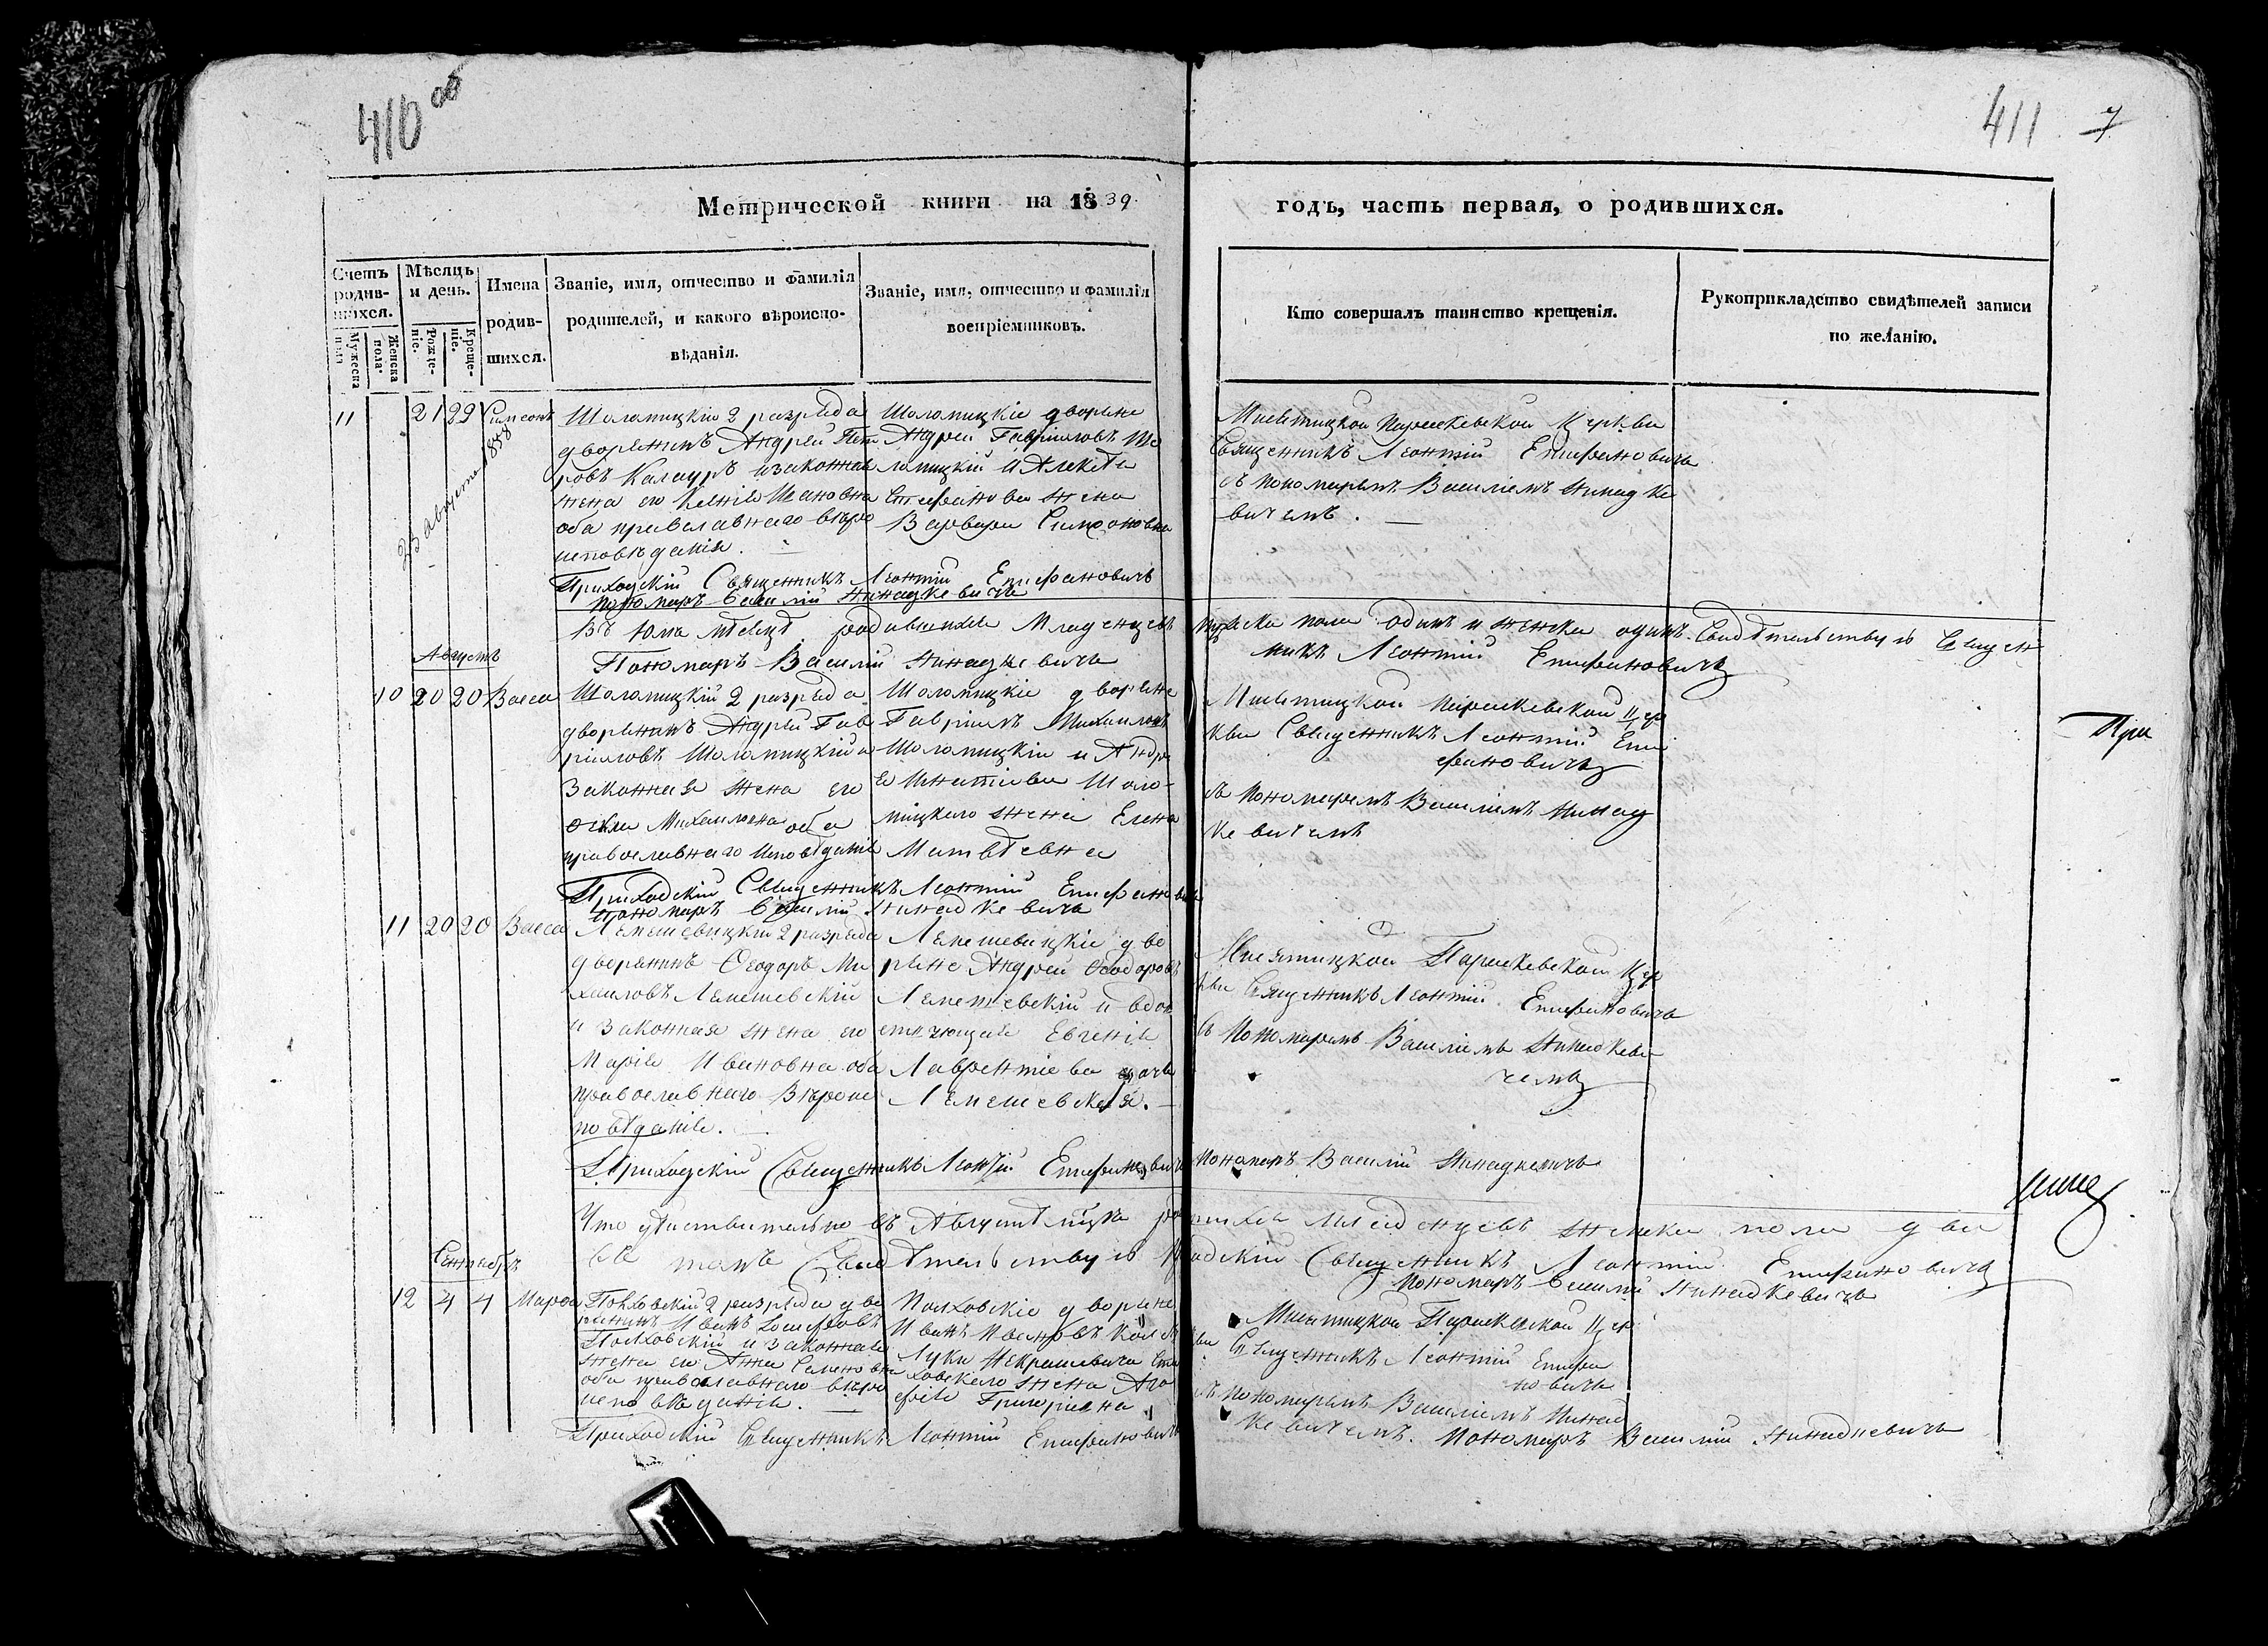 410 об
411 7
Метрической книги на 1839.
годъ, часть первая, о родившихся.
Счетъ родив-шихся.
Мужеска пола
Женска пола.
Мѣсяцъ и день.
Рожде-ніе.
Креще-ніе.
Имена родив-шихся.
Званіе, имя, отчество и фамилія родителей, и какого вѣроиспо-вѣданія.
Званіе, имя, отчество и фамилія воспріемниковъ.
Кто совершалъ таинство крещенія.
Рукоприкладство свидѣтелей записи по желанію.
11 21 22 Симеонъ
Шоломицкій 2 разряда
дворянинъ Андрей Пет
ровъ Калауръ и законная
жена его Ксенія Ивановна
оба православнаго вѣро
исповѣданія.
Шоломицкіе дворяне
Андрей Гавріиловъ Шо
ломицкій и Алекса
Стефанова жена
Варвара Симоновна
священникъ Леонтій Епифановичъ
съ пономаремъ Василіемъ Жинадке
вичемъ.
Приходскій Священникъ Леонтій Епифановичъ
Пономаръ Василій Жинадкевичъ
Въ Юлѣ мѣсяцѣ родившихся младенцевъ мужеска пола одинъ и женска одинъ. Свидѣтельствую Священ
никъ Леонтій Епифановичъ
Пономаръ Василій Жинадкевичъ
Августъ
10 20 20 Васса
Шоломицкій 2 разряда
дворянинъ Андрей Гав
ріиловъ Шоломицкій и
законная жена его
Михаиловна оба
православнаго исповѣданія
Шоломицкіе дворяне
Гавріилъ Михаиловъ
Шоломицкій и Андре
я Игнатіева Шоло-
мицкаго жена Елена
Матвѣевна
Параскевской Цер
кви Священникъ Леонтій Епи
фановичъ
съ пономаремъ Василіемъ Жинад
кевичемъ
Приходскій Священникъ Леонтій Епифановичъ
Пономаръ Василій Жинадкевичъ
При
11 20 20 Васса
Лемешевицкій 2 разряда
дворянинъ Ѳеодоръ Ми
хаиловъ Лемешевскій
и законная жена его
Марія Ивановна оба
православнаго вѣроис
повѣданія.
Лемешевицкіе дво
ряне Андрей Ѳеодоровъ
Лемешевскій и вдов
ствующая Евгенія
Лаврентіева дочь
Лемешевская.
Параскевской Цер
кви Священникъ Леонтій Епифановичъ
съ пономаремъ Василіемъ Жинадкеви
чемъ
Приходскій Священникъ Леонтій Епифановичъ Пономаръ Василій Жинадкевичъ
Что дѣйствительно въ Августѣ мѣсяцѣ родившихся младенцевъ женска пола два
въ томъ Свидѣтельствую Приходскій Священникъ Леонтій Епифановичъ
Пономаръ Василій Жинадкевичъ
Сентябрь
12 4 4
Полховскій 2 разряда дво
рянинъ Иванъ
Полховскій и законная
жена его Анна Семеновна
оба православнаго вѣро
исповѣданія.
Полховскіе дворяне
Иванъ Ивановъ
Луки Некрашевича
ховскаго жена Ага
фія Григоріевна
Параскевской Цер
кви Священникъ Леонтій Епифа
новичъ
съ пономаремъ Василіемъ Жинад
кевичемъ. Пономаръ Василій Жинадкевичъ
Приходскій Священникъ Леонтій Епифановичъ